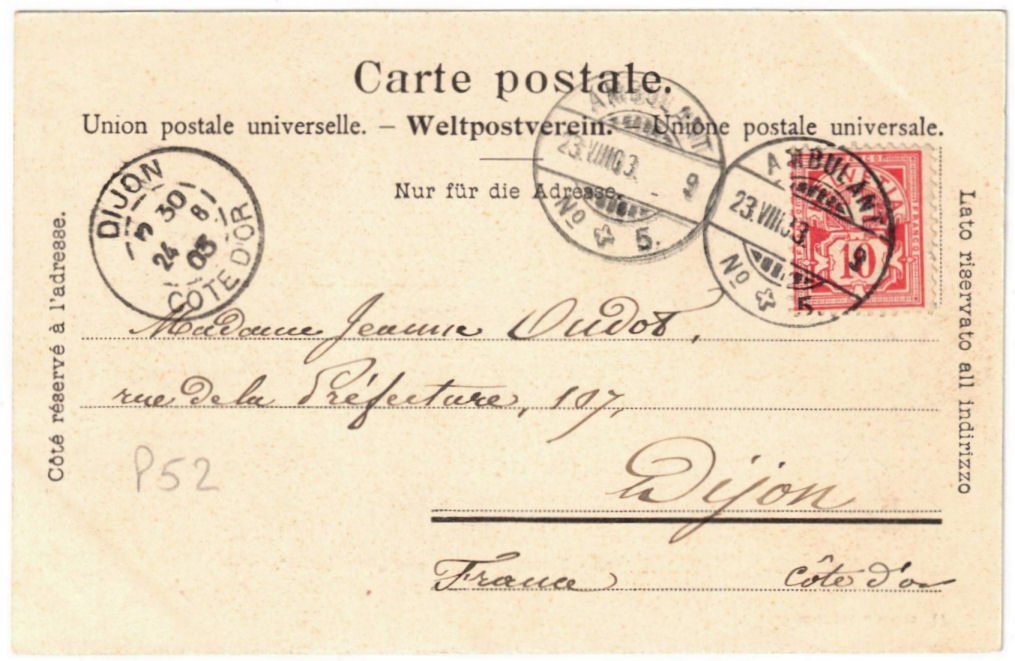 Carte postale.
Union postale universelle. – Weltpostverein. – Unione postale universale.
Nur für die Adresse.
Côté réservé à l'adresse.
Lato riservato all indirizzo
DIJON
30
24 8
03
COTE D'OR
AMBULANT
23.VIII03. 9
No 5.
AMBULANT
23.VIII03 9
No 5.
10
Madame Jeanne Oudot,
rue de la Préfecture, 107,
à Dijon
France Côte d'or
P52